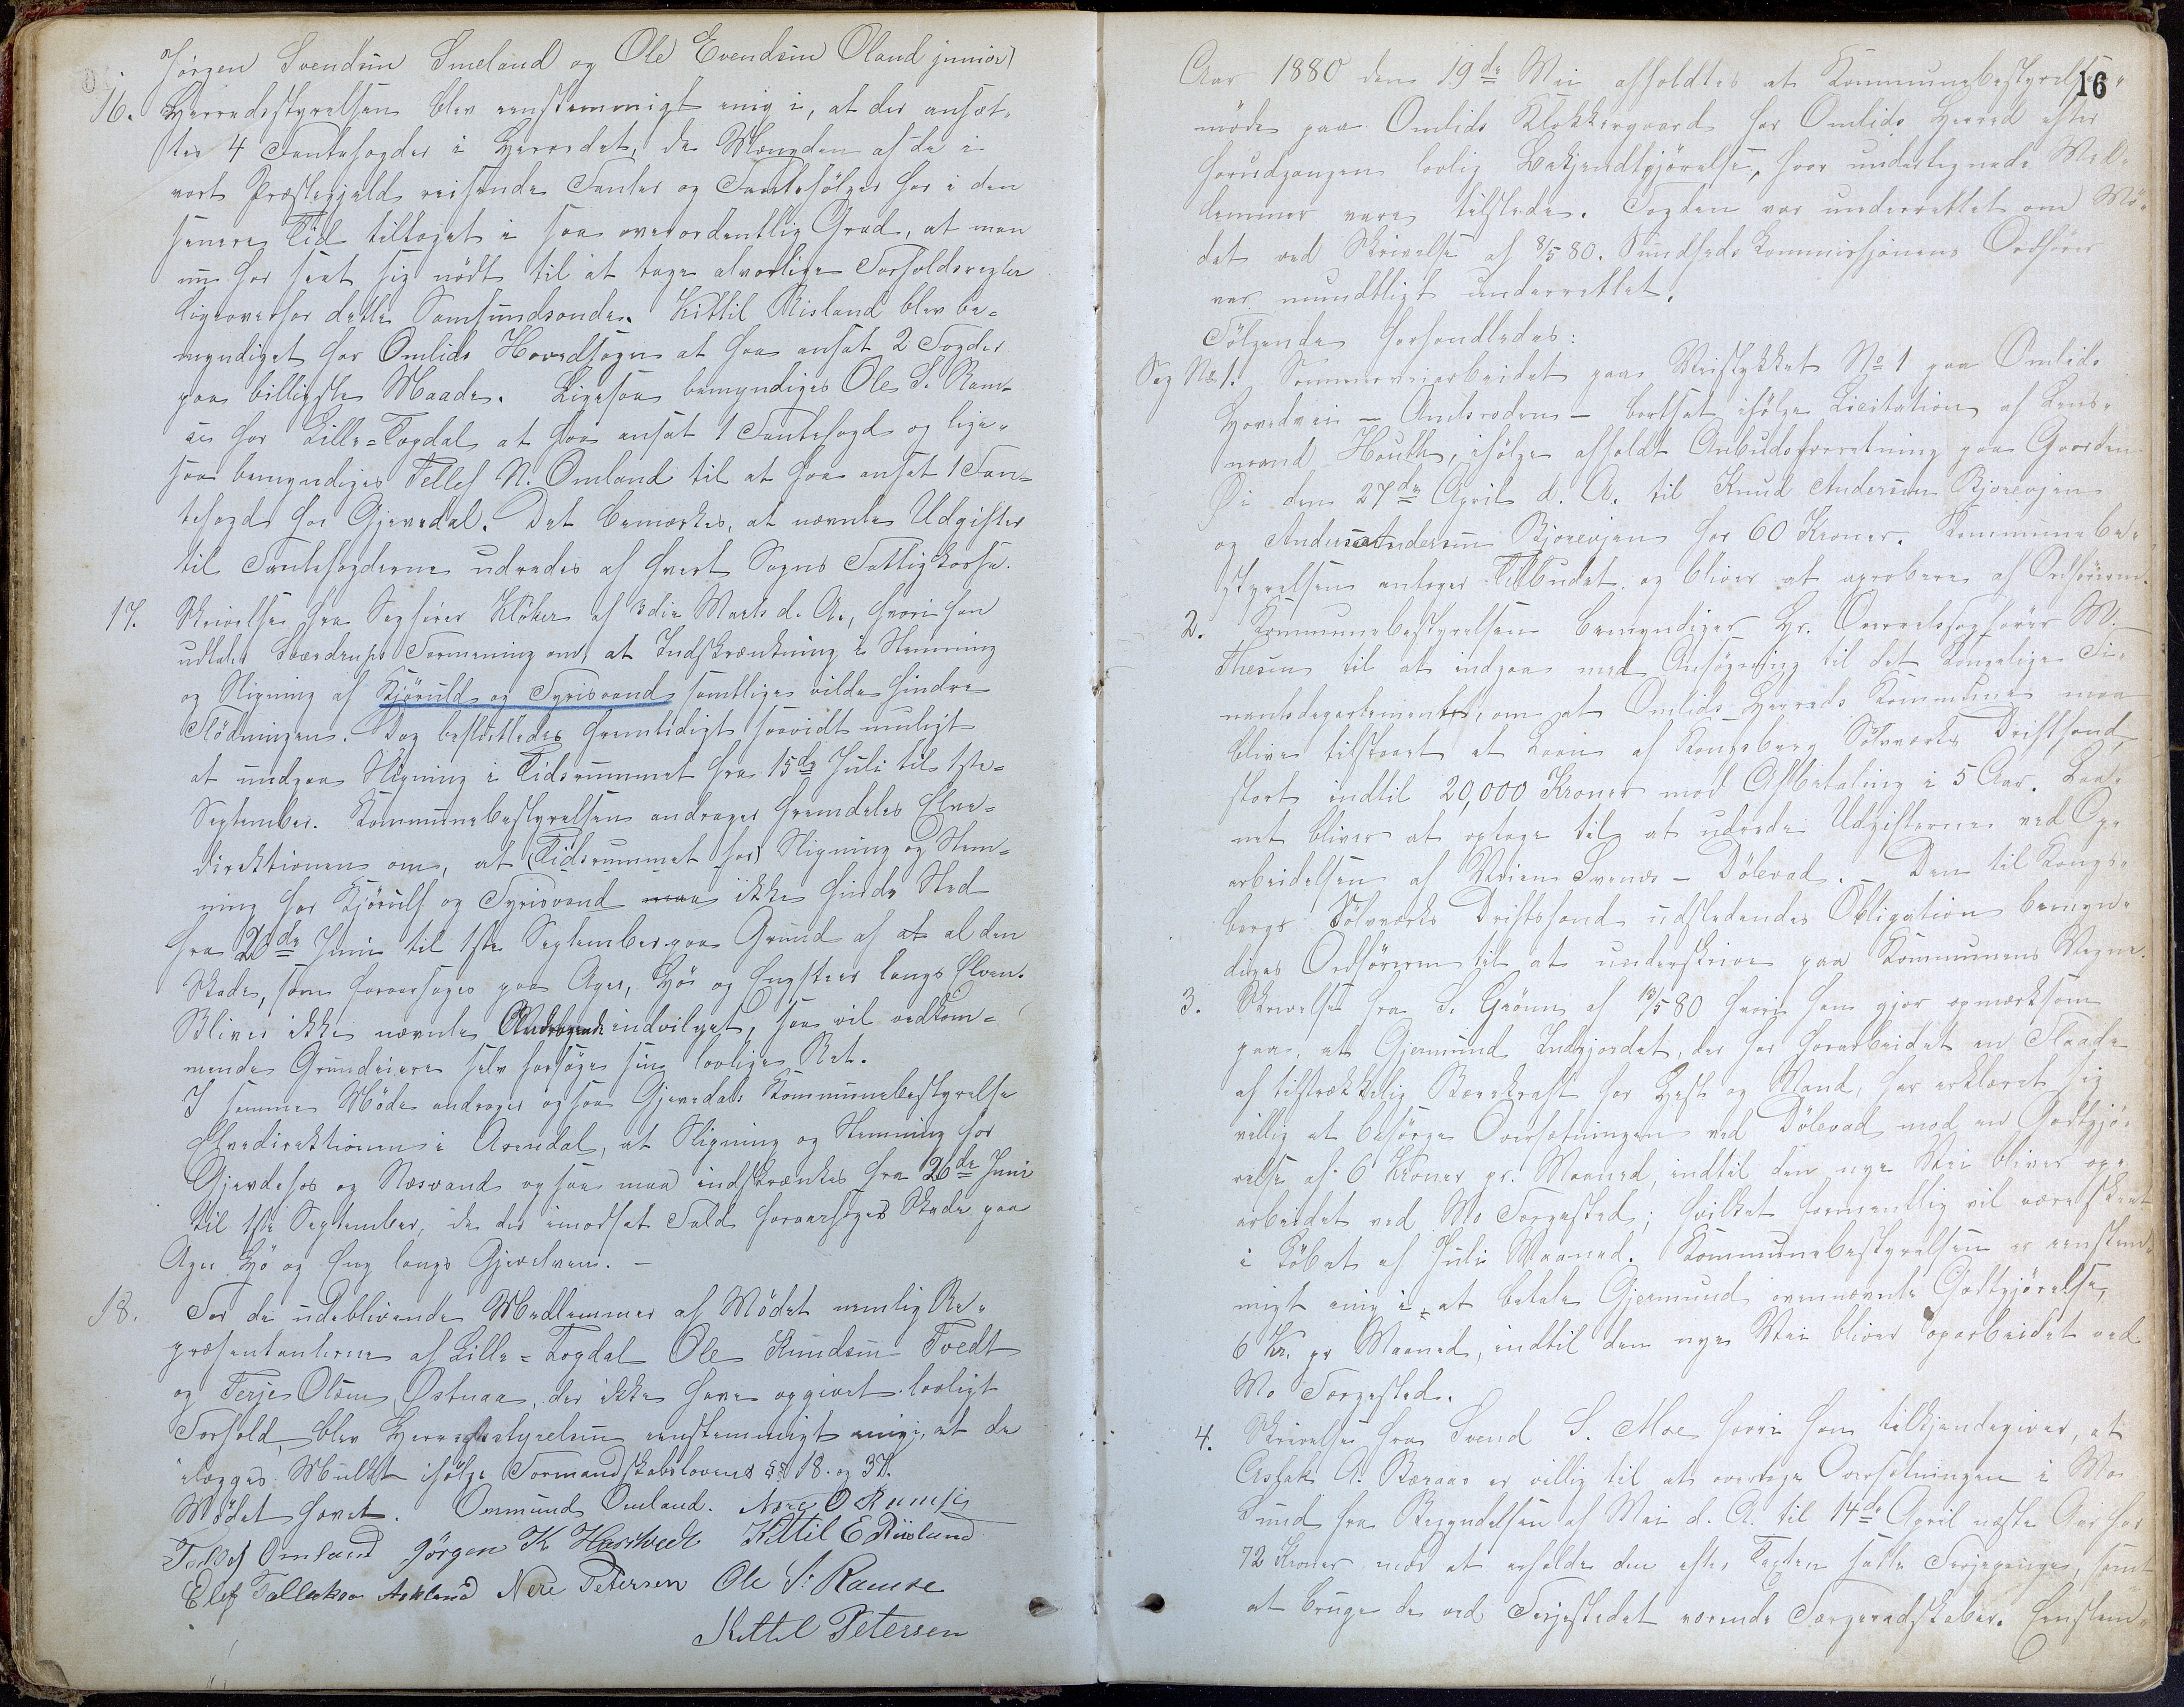 Jörgen Svendsen Smeland og Ole Evendsen Oland junior)
16. Herredsstyrelsen blev eenstemmigt enig i, at der ansæt-
tes 4 Fantefogder i Herredet, da Mængden af de i
vort Præstegjeld reisende Fanter og Fantefölger har i den
senere Tid tiltaget i saa overordentlig Grad, at man
nu har seet sig nödt til at tage alvorlige Forholdsregler
ligeoverfor dette Samfundsonde. Kittil Risland blev be-
myndiget for Omlids Hovedsogn at faa ansat 2 Fogder
paa billigste Maade. Ligesaa bemyndiges Ole S. Ram-
se for Lille-Topdal at faa ansat 1 Fantefogd og lige-
saa bemyndiges Tellef N. Omland til at faa ansat 1 Fan-
tefogd for Gjevedal. Det bemærkes, at nævnte Udgifter
til Fantefogderne udredes af hvert Sogns Fattigkasse.
17. Skrivelse fra Sagförer Klöker af 3die Marts d. A., hvori han
udtaler Sværdrups Formening om, at Indskrænkning i Stemning
og Stigning af Kjöruld og Tyrisvand samtlige vilde hindre
Flödningen. Dog besluttedes fremtidigt saavidt muligt
at undgaa Stigning i Tidsrummet fra 15de Juli til 1ste
September. Kommunebestyrelsen andrager fremdeles Elve-
direktionen om, at (Tidsrummet for) Stigning og Stem-
ning for Kjörulf og Tyrisvand maa ikke finde Sted
fra 20de Juni til 1ste September paa Grund af at al den
Skade, som foraarsages paa Ager, Hö og Engsteer langs Elven.
Bliver ikke nævnte Andragende indvilget, saa vil vedkom-
mende Grundeiere selv forsöge sin lovlige Ret.
I samme Möde andrager ogsaa Gjevedals Kommunebestyrelse
Elvedirektionen i Arendal, at Stigning og Stemning for
Gjevdefos og Næsvand ogsaa maa indskrænkes fra 26de Juni
til 1ste September, da der imodsat Fald foraarsages Skade paa
Ager Hö og Eng langs Gjevelven. —
18. For de udeblivende Medlemmer af Mödet nemlig Re-
præsentanterne af Lille-Topdal Ole Knudsen Tvedt
og Terje Olsen Østnaa, der ikke have opgivet lovligt
Forfald, blev Herredsstyrelsen eenstemmigt enig i, at de
ilægges Mulkt ifölge Formandskabslovens §§ 18. og 37.
Mödet hævet. Onmund Omland. Nere O Ramse
Tellef Omland Jörgen K Hasstvedt Kittil E Risland
Elef Tallakson Askland Nere Petersen Ole S. Ramse
Kittel Petersen
16
Aar 1880 den 19de Mai afholdtes et Kommunebestyrelses-
möde paa Omlids Klokkergaard for Omlids Herred efter
forudgangen lovlig Bekjendtgjörelse, hvor undertegnede Med-
lemmer vare tilstede. Fogden var underrettet om Mö-
det ved Skrivelse af 8/5 80. Sundheds Kommissionens Ordförer
var mundtligt underrettet.
Fölgende forhandledes:
Sag No 1. Sommerveiarbeidet paa Veistykket No 1 paa Omlids
Hovedvei — Amlsroden — bortsat ifölge Licitation af Lens-
mand Houth, ifölge afholdt Anbudsforretning paa Gaarden
Øi den 27de April d. A. til Knud Andersen Bjorevjen
og Anders Andersen Bjorevjen for 60 Kroner. Kommunebe-
styrelsen antager Tilbudet og bliver at aprobere af Ordföreren.
2. Kommunebestyrelsen bemyndiger Hr. Overretssagförer M.
Thesen til at indgaa med Ansögning til det Kongelige Fi-
nantsdepartement, om at Omlids Herreds Kommune maa
blive tilstaaet et Laan af Kongsberg Sölvværks Driftsfond,
stort indtil 20,000 Kroner mod Afbetaling i 5 Aar. Laa-
net bliver at optage til at udrede Udgifterne ved Op-
arbeidelsen af Veien Svenæs — Dölevad. — Den til Kongs-
bergs Sölvværks Driftsfond udstedende Obligation bemyn-
diges Ordföreren til at underskrive paa Kommunens Vegne.
3. Skrivelse fra S. Grönn af 13/5 80 hvori han gjör opmærksom
paa, at Gjermund Indgjordet, der har forarbeidet en Flaade
af tilstrækkelig Bærekraft for Hest og Mand, har erklæret sig
villig at besörge Oversætningen ved Dölevad mod en Godtgjö-
relse af 6 Kroner pr. Maaned, indtil den nye Vei bliver op-
arbeidet ved Mo Færgested; hvilket formentlig vil være skeet
i Löbet af Juli Maaned. Kommunebestyrelsen er eenstem-
migt enig i, at betale Gjermund ovennævnte Godtgjörelse,
6 Kr. pr Maaned, indtil den nye Vei bliver oparbeidet ved
Mo Færgested.
4. Skrivelse fra Svend S. Moe hvori han tilkjendegiver, at
Aslak A. Bæraas er villig til at overtage Oversætningen i Mo
Sund fra Begyndelsen af Mai d. A. til 14de April næste Aar for
72 Kroner mod at erholde den efter Taxten satte Færjepenge, samt
at bruge de ved Færjestedet værende Færgeredskaber. Eenstem-